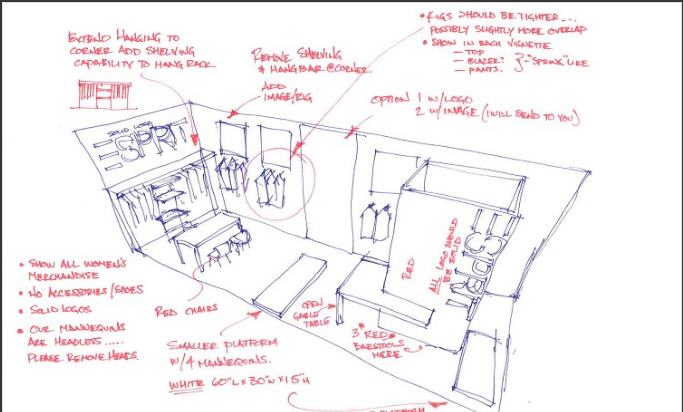 EXTEND HANGING TO
CORNER ADD SHELVING
CAPABILITY TO HANG RACK
REMOVE SHELVING
& HANGBAR @ CORNER
ADD
IMAGE/RIG
• RIGS SHOULD BE TIGHTER...
POSSIBLY SLIGHTLY MORE OVERLAP
• SHOW IN EACH VIGNETTE
— TOP
— BLAZER?
— PANTS.
"SPRING" LIKE
OPTION 1 W/LOGO
2 W/IMAGE (I WILL SEND TO YOU)
SOLID LOGO
ESPRIT
RED
ALL LOGO SHOULD
BE SOLID
ESPRIT
• SHOW ALL WOMEN'S
MERCHANDISE
• NO ACCESSORIES/SHOES
• SOLID LOGOS
• OUR MANNEQUINS
ARE HEADLESS.....
PLEASE REMOVE HEADS.
RED CHAIRS
SMALLER PLATFORM
W/4 MANNEQUINS.
WHITE 60"L X 30"W X 15"H
OPEN
GABLE
TABLE
3 RED
BARSTOOLS
HERE
PLATFORM